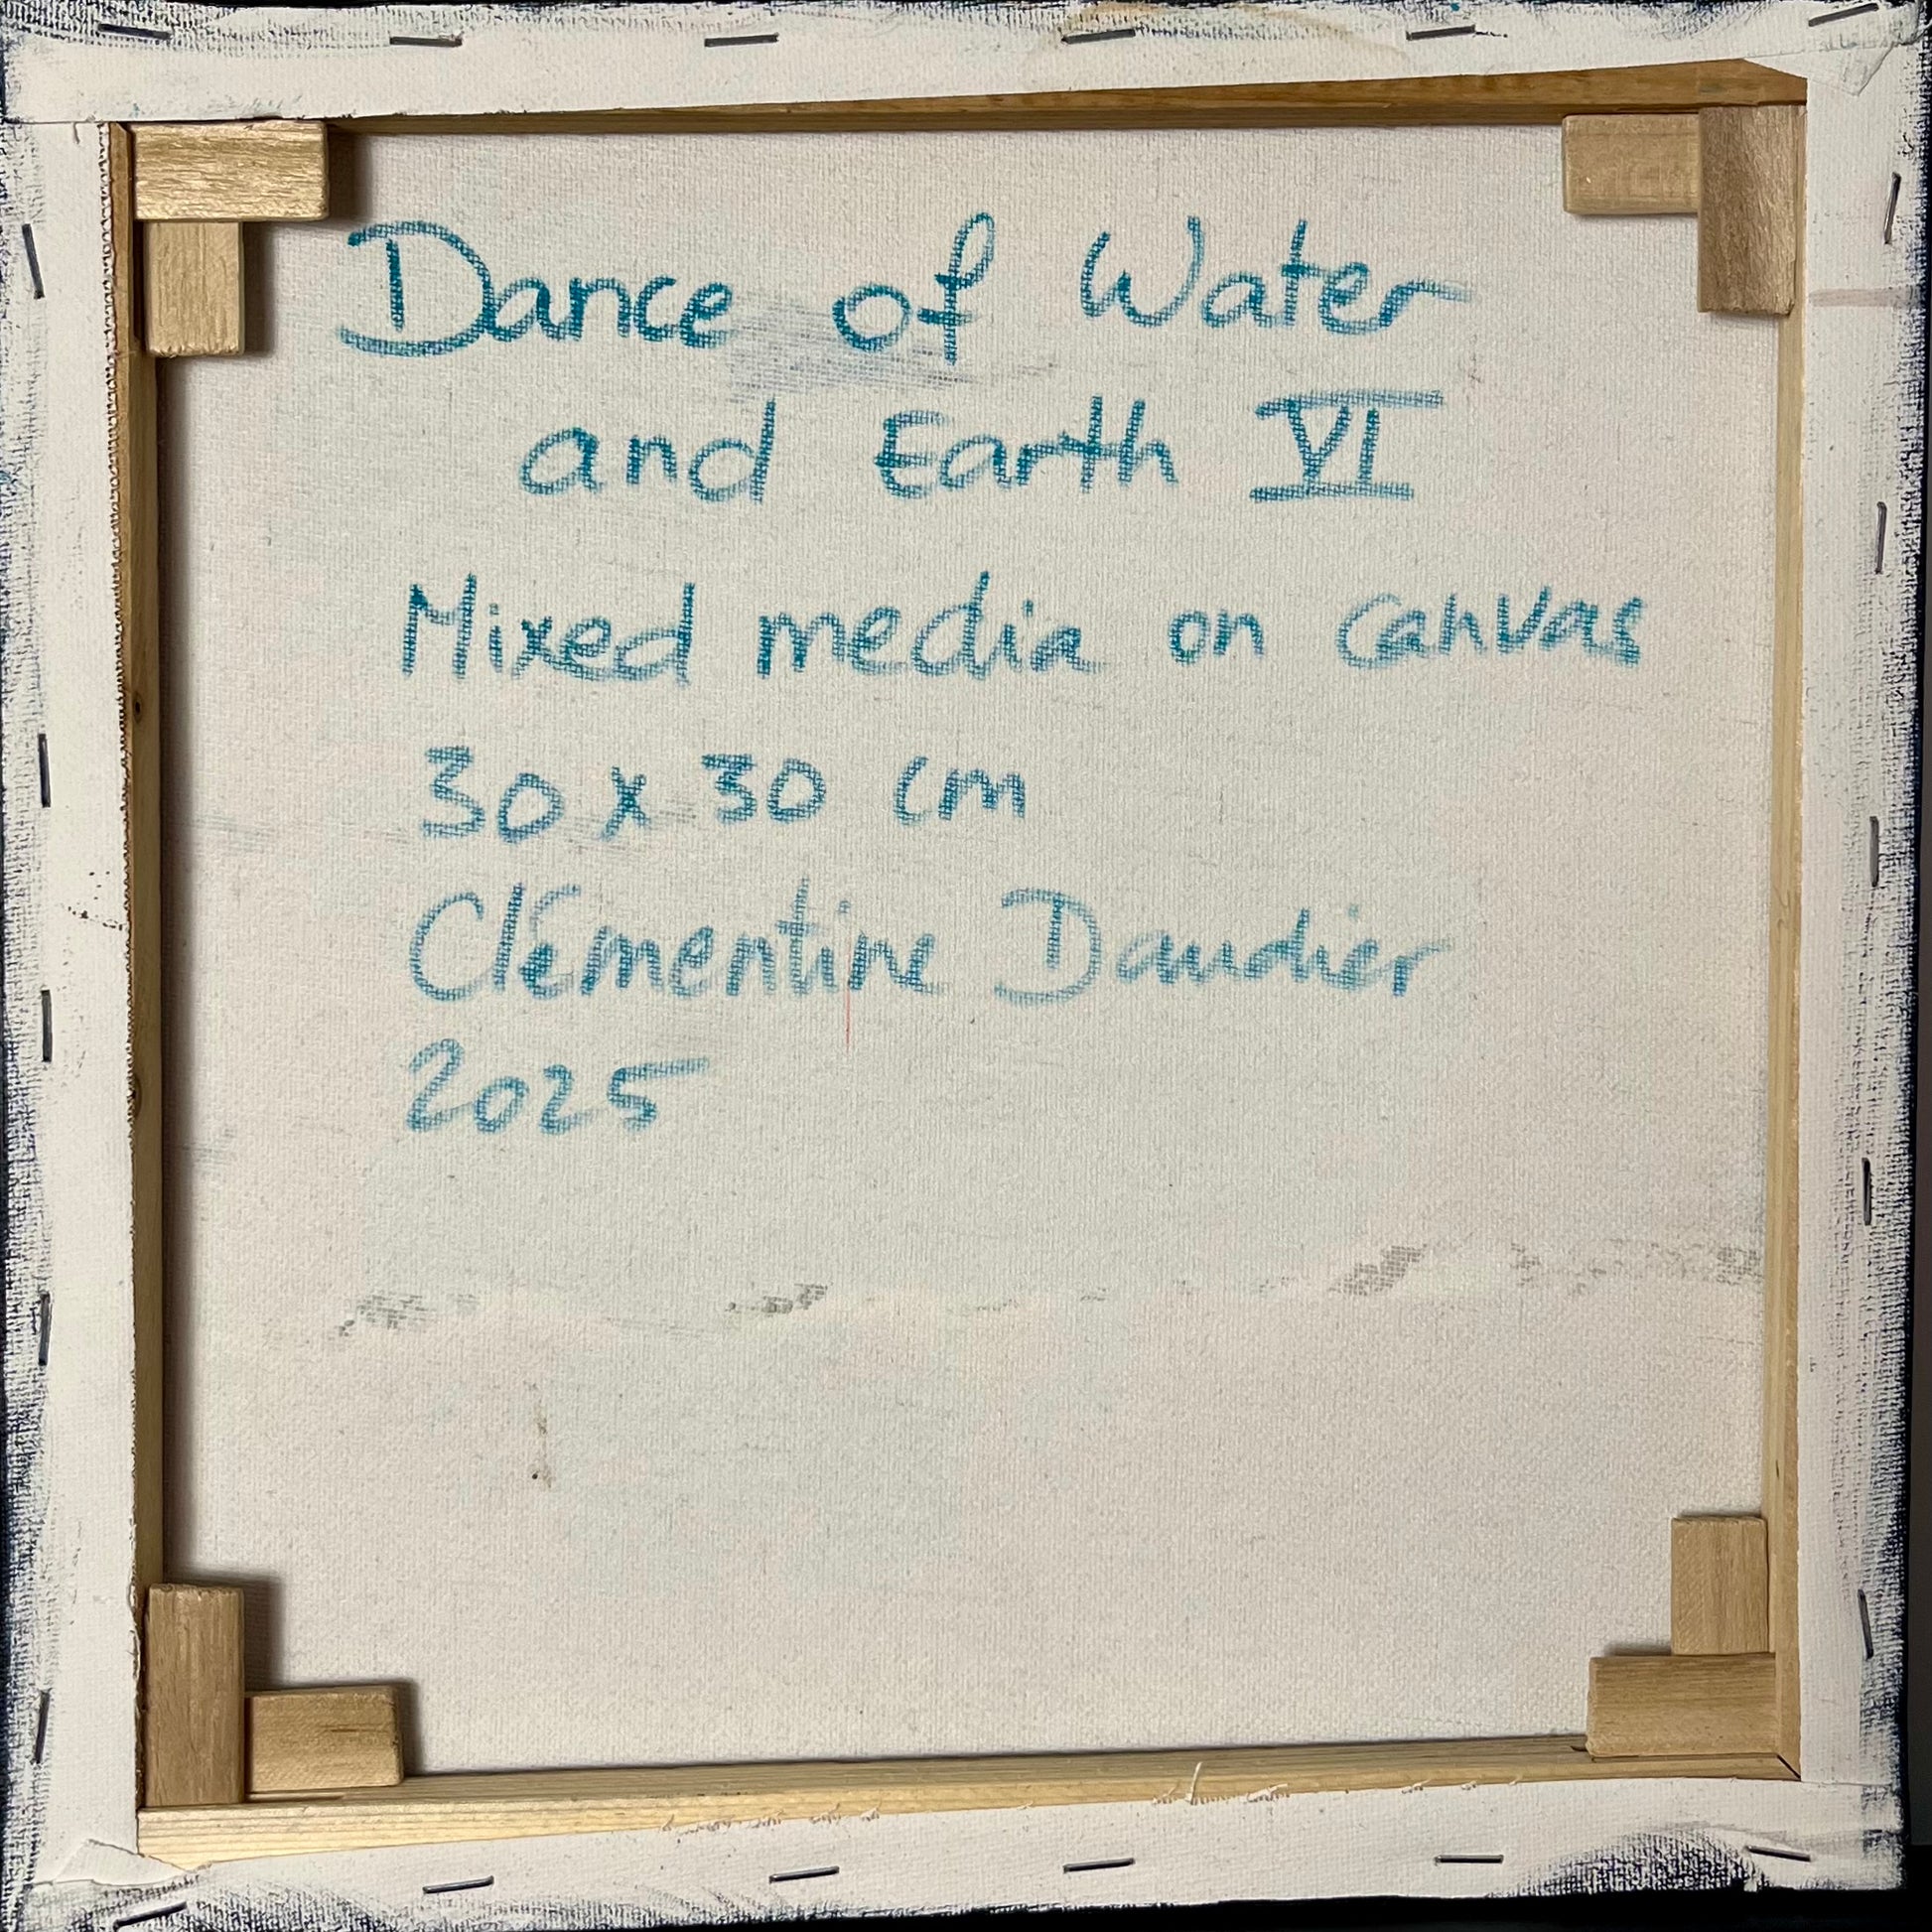 Dance of Water
and Earth VI
Mixed media on canvas
30 x 30 cm
Clémentine Daudier
2025